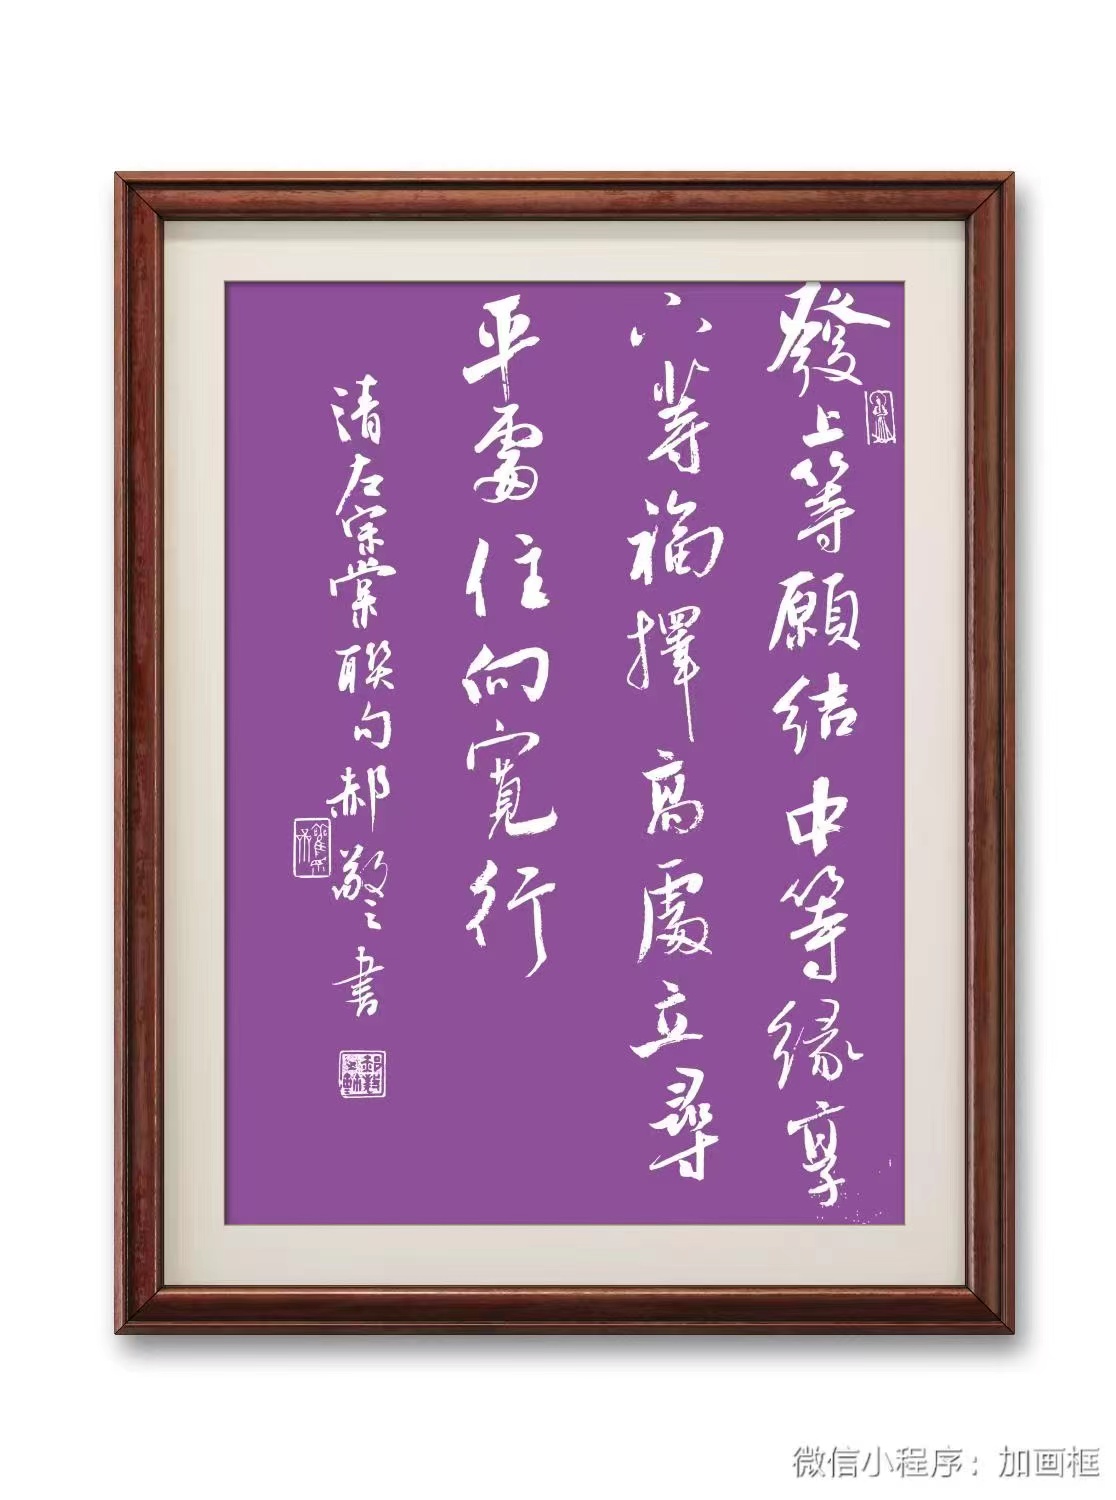 發上等願結中等緣享
下等福擇高處立尋
平處住向寬行
清左宗棠聯句郝敬之書
微信小程序：加画框